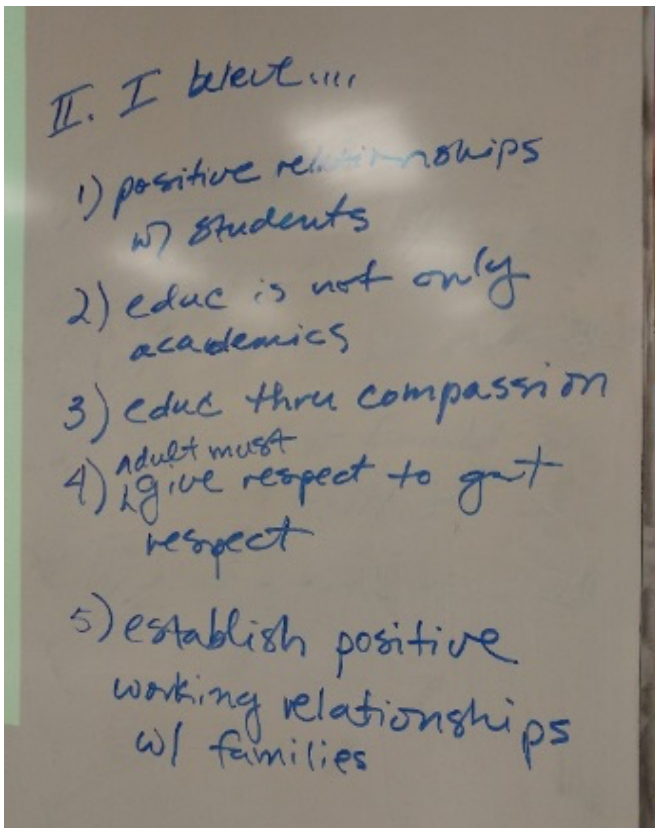 II. I believe....
1) positive relationships
w/ students
2) educ is not only
academics
3) educ thru compassion
adult must
4) give respect to get
respect
5) establish positive
working relationships
w/ families